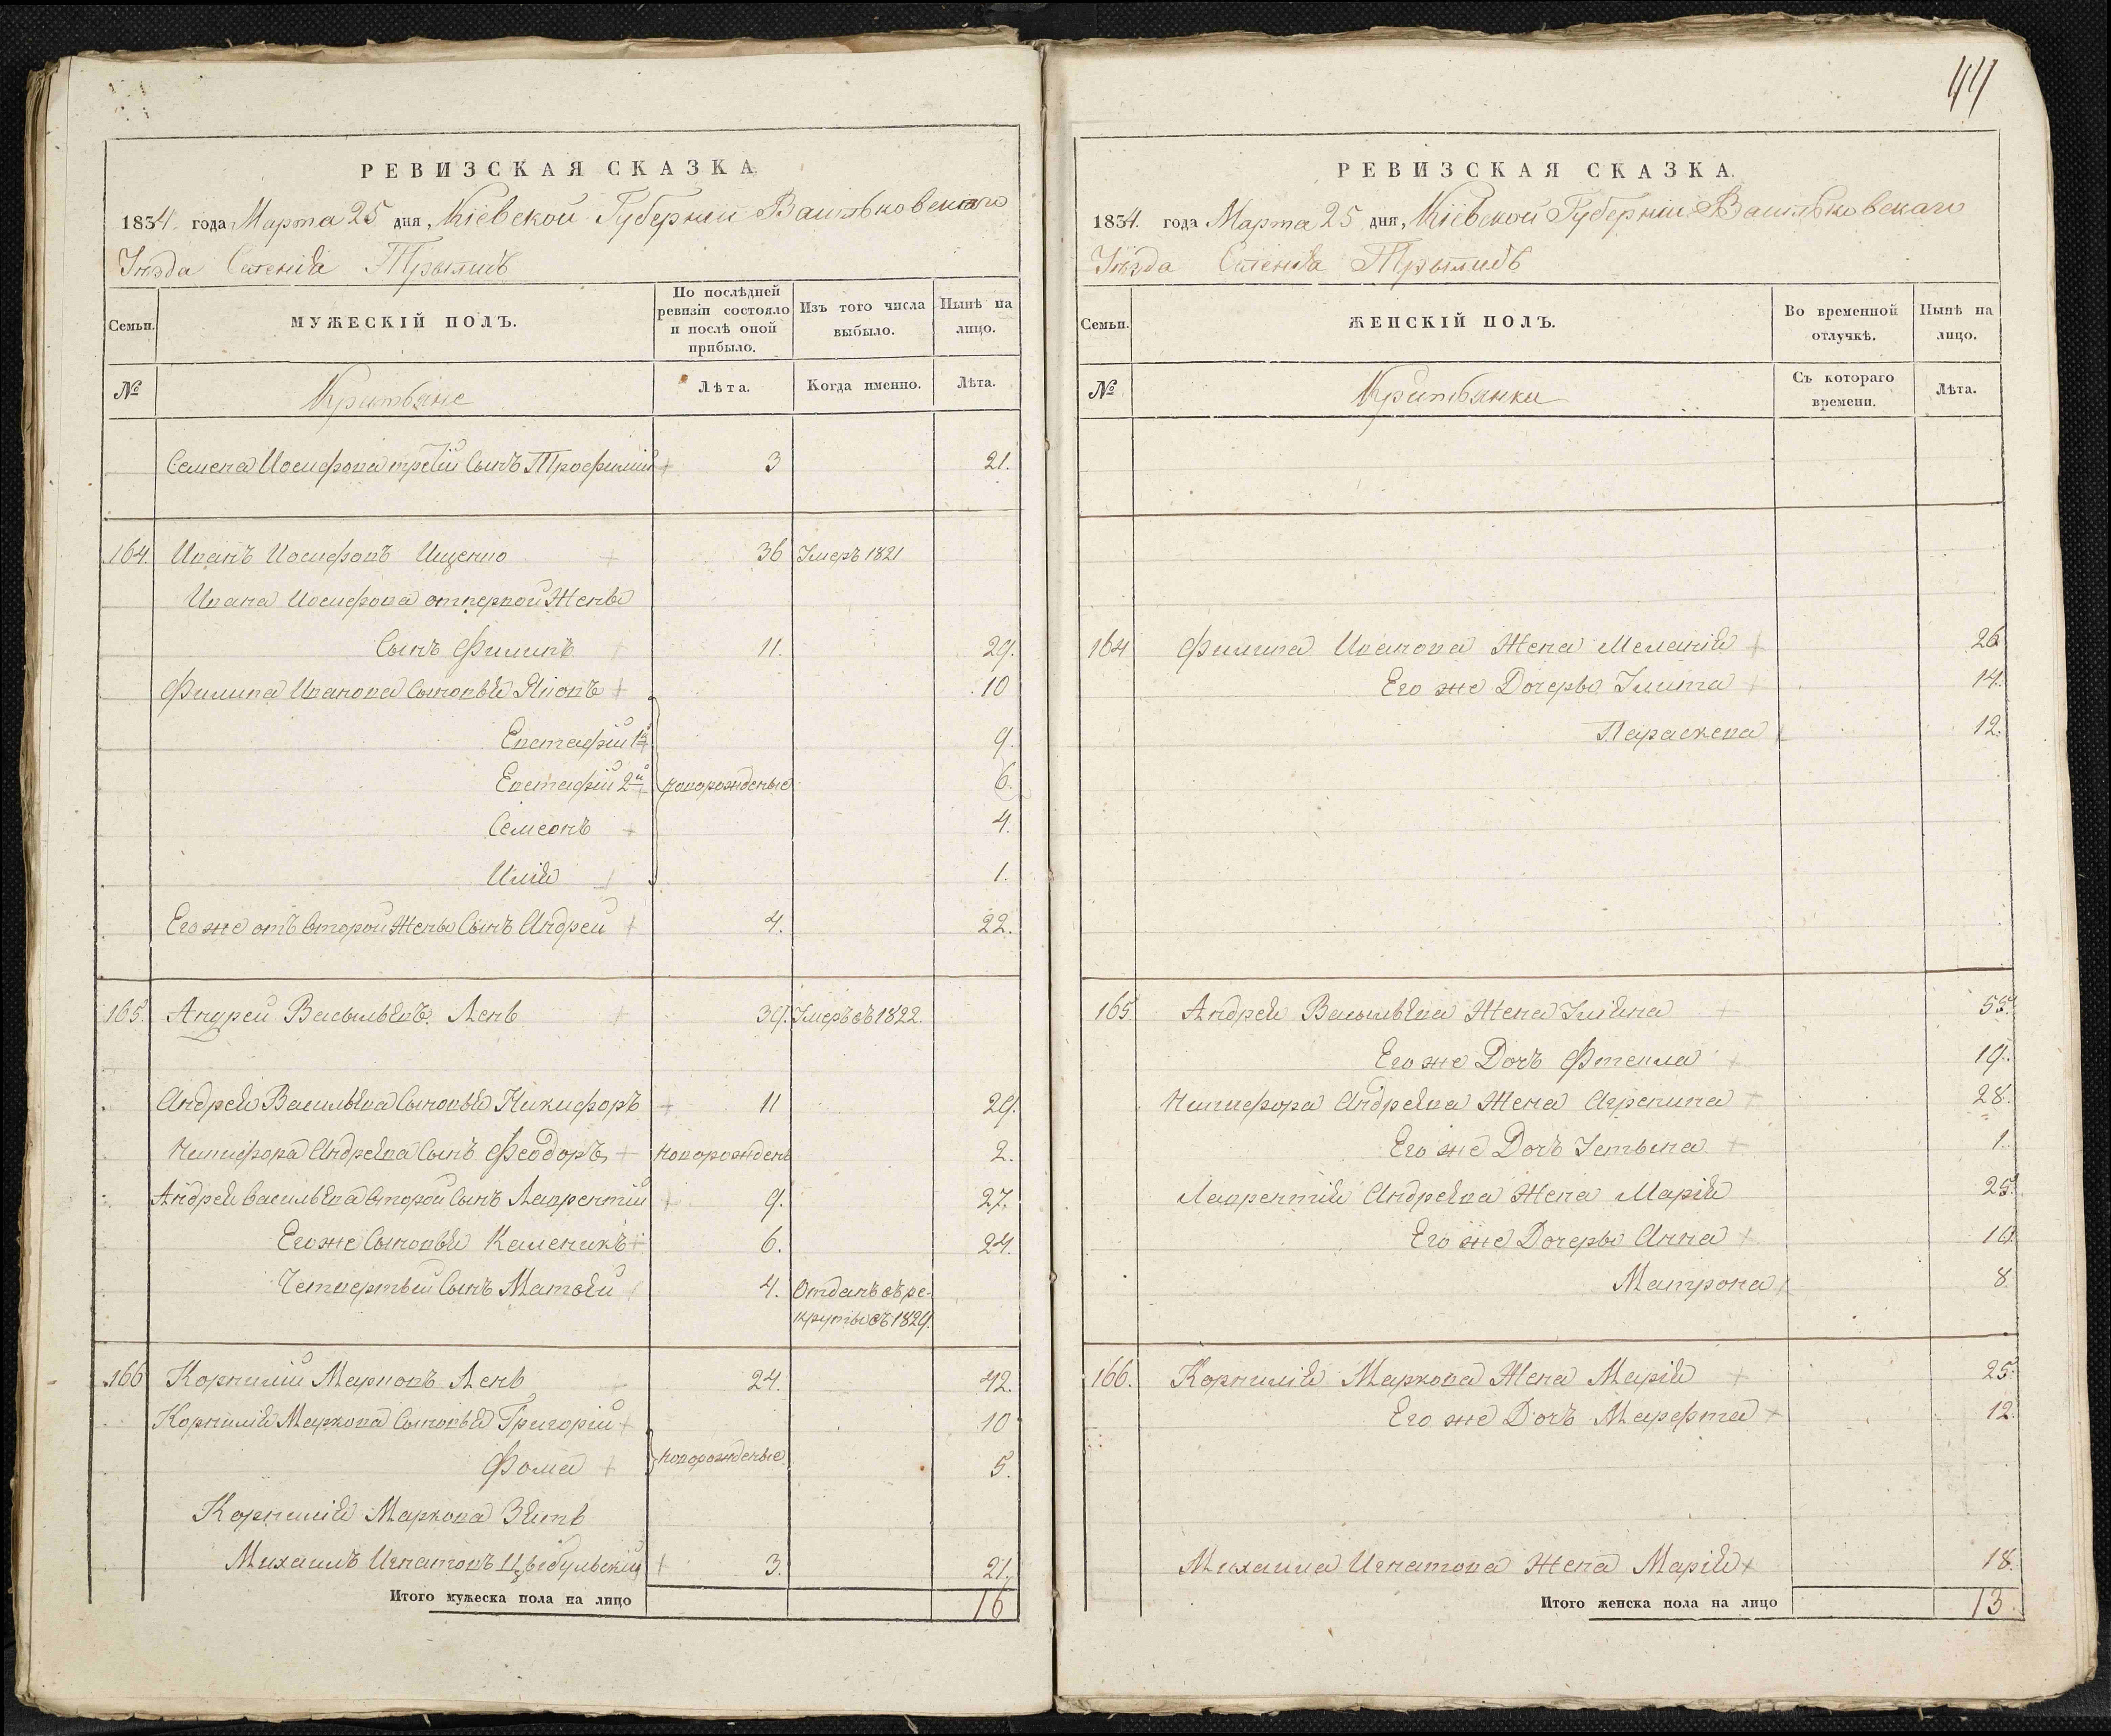 44
РЕВИЗСКАЯ СКАЗКА
1834. года Марта 25 дня, Кіевской Губерніи Васильковскаго
Уѣзда Селенія Трылисъ
Семьи.
МУЖЕСКІЙ ПОЛЪ.
По послѣдней ревизіи состояло и послѣ оной прибыло.
Изъ того числа выбыло.
Нынѣ на лицо.
№
Лѣта.
Когда именно.
Лѣта.
Семена Иосифова третій Сынъ Трофимій 3 21.
164. Иванъ Иосифовъ Ищенко 36 Умеръ 1821
Ивана Иосифова отпервой Жены
Сынъ Филипъ 11. 29.
Филипа Иванова Сыновья Яковъ 10
Евстафій 1й 9.
Евстафій 2й новорожденые 6.
Семеонъ 4.
Илія 1.
Его же отъ второй Жены Сынъ Андрей 4. 22.
165. Андрей Васильевъ Лень 39. Умеръ въ 1822.
Андрея Васильева Сыновья Никифоръ 11 29.
Никифора Андреева Сынъ Феодоръ новорожденъ 2.
Андрея Васильева второй Сынъ Лаврентій 9. 27.
Его же Сыновья Каленикъ 6. 24.
Четвертый Сынъ Матвей 4. Отданъ въ ре-
круты въ 1829.
166 Корнилій Марковъ Лень 24. 42.
Корнилія Маркова Сыновья Григорій 10
Фома новорожденые 5.
Корнилія Маркова Зять
Михаилъ Игнатовъ Цыбульскій 3. 21.
Итого мужеска пола на лицо 16
РЕВИЗСКАЯ СКАЗКА.
1834. года Марта 25 дня, Кіевской Губерніи Васильковскаго
Уѣзда Селенія Трылисъ
Семьи.
ЖЕНСКІЙ ПОЛЪ.
Во временной отлучкѣ.
Нынѣ на лицо.
№
Съ котораго времени.
Лѣта.
164 Филипа Иванова Жена Меланія 26
Его же Дочеры Улита 14.
Параскева 12.
165. Андрея Васильева Жена Уліяна 55.
Его же Дочъ Фтекла 19.
Никифора Андреева Жена Агрепина 28.
Его же Дочъ Устына 1.
Лаврентія Андреева Жена Марія 25.
Его же Дочеры Анна 10.
Матрона 8.
166. Корнилія Маркова Жена Марія 25.
Его же Дочъ Марфта 12.
Михаила Игнатова Жена Марія 18.
Итого женска пола на лицо 13.